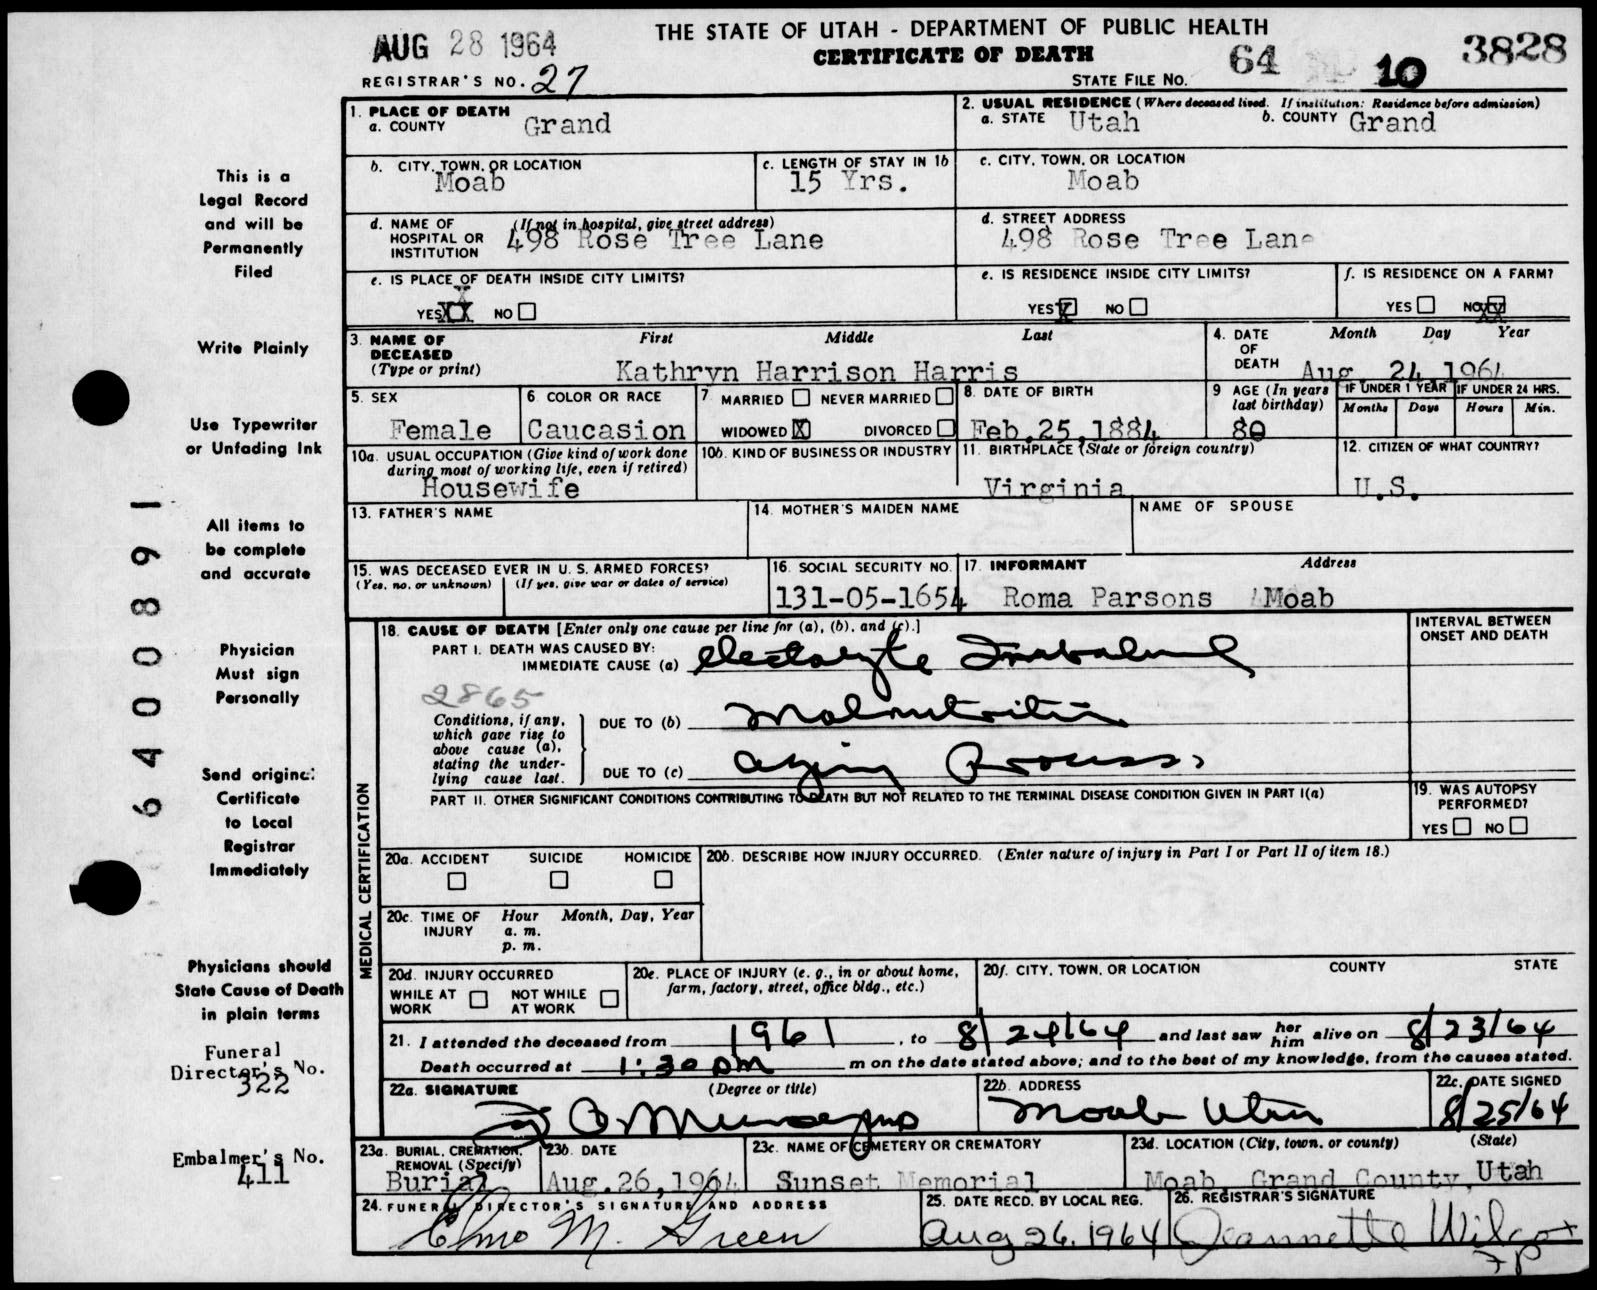 THE STATE OF UTAH - DEPARTMENT OF PUBLIC HEALTH
CERTIFICATE OF DEATH
AUG 28 1964
REGISTRAR'S NO. 27
STATE FILE NO. 64 10 3828
1. PLACE OF DEATH
a. COUNTY Grand
2. USUAL RESIDENCE (Where deceased lived. If institution: Residence before admission)
a. STATE Utah b. COUNTY Grand
b. CITY, TOWN, OR LOCATION
Moab
c. LENGTH OF STAY IN 1b
15 Yrs.
c. CITY, TOWN, OR LOCATION
Moab
d. NAME OF HOSPITAL OR INSTITUTION (If not in hospital, give street address)
498 Rose Tree Lane
d. STREET ADDRESS
498 Rose Tree Lane
e. IS PLACE OF DEATH INSIDE CITY LIMITS?
YES X NO
e. IS RESIDENCE INSIDE CITY LIMITS?
YES X NO
f. IS RESIDENCE ON A FARM?
YES NO XX
3. NAME OF DECEASED (Type or print)
First Middle Last
Kathryn Harrison Harris
4. DATE OF DEATH Month Day Year
Aug. 24, 1964
5. SEX
Female
6. COLOR OR RACE
Caucasion
7. MARRIED NEVER MARRIED
WIDOWED X DIVORCED
8. DATE OF BIRTH
Feb.25,1884
9 AGE (In years last birthday)
80
IF UNDER 1 YEAR IF UNDER 24 HRS.
Months Days Hours Min.
10a. USUAL OCCUPATION (Give kind of work done during most of working life, even if retired)
Housewife
10b. KIND OF BUSINESS OR INDUSTRY
11. BIRTHPLACE (State or foreign country)
Virginia
12. CITIZEN OF WHAT COUNTRY?
U.S.
13. FATHER'S NAME
14. MOTHER'S MAIDEN NAME
NAME OF SPOUSE
15. WAS DECEASED EVER IN U. S. ARMED FORCES?
(Yes, no, or unknown) (If yes, give war or dates of service)
16. SOCIAL SECURITY NO.
131-05-1654
17. INFORMANT Address
Roma Parsons Moab
18. CAUSE OF DEATH [Enter only one cause per line for (a), (b), and (c).]
INTERVAL BETWEEN ONSET AND DEATH
PART I. DEATH WAS CAUSED BY:
IMMEDIATE CAUSE (a) electolyte Imbalance
2865
Conditions, if any, which gave rise to above cause (a), stating the underlying cause last.
DUE TO (b) Malnutrition
DUE TO (c) aging Process
PART II. OTHER SIGNIFICANT CONDITIONS CONTRIBUTING TO DEATH BUT NOT RELATED TO THE TERMINAL DISEASE CONDITION GIVEN IN PART I(a)
19. WAS AUTOPSY PERFORMED?
YES NO
MEDICAL CERTIFICATION
20a. ACCIDENT SUICIDE HOMICIDE
20b. DESCRIBE HOW INJURY OCCURRED. (Enter nature of injury in Part I or Part II of item 18.)
20c. TIME OF INJURY Hour Month, Day, Year
a. m.
p. m.
20d. INJURY OCCURRED
WHILE AT WORK NOT WHILE AT WORK
20e. PLACE OF INJURY (e. g., in or about home, farm, factory, street, office bldg., etc.)
20f. CITY, TOWN, OR LOCATION COUNTY STATE
21. I attended the deceased from 1961, to 8/24/64 and last saw her him alive on 8/23/64
Death occurred at 1:30 pm m on the date stated above; and to the best of my knowledge, from the causes stated.
22a. SIGNATURE (Degree or title)
22b. ADDRESS
Moab Utah
22c. DATE SIGNED
8/25/64
23a. BURIAL, CREMATION, REMOVAL (Specify)
Burial
23b. DATE
Aug.26,1964
23c. NAME OF CEMETERY OR CREMATORY
Sunset Memorial
23d. LOCATION (City, town, or county) (State)
Moab, Grand County, Utah
24. FUNERAL DIRECTOR'S SIGNATURE AND ADDRESS
Elmo M. Green
25. DATE RECD. BY LOCAL REG.
Aug 26, 1964
26. REGISTRAR'S SIGNATURE
Jeannette Wilcox
This is a
Legal Record
and will be
Permanently
Filed
Write Plainly
Use Typewriter
or Unfading Ink
All items to
be complete
and accurate
Physician
Must sign
Personally
Send original
Certificate
to Local
Registrar
Immediately
Physicians should
State Cause of Death
in plain terms
Funeral
Director's No.
322
Embalmer's No.
411
64 00891